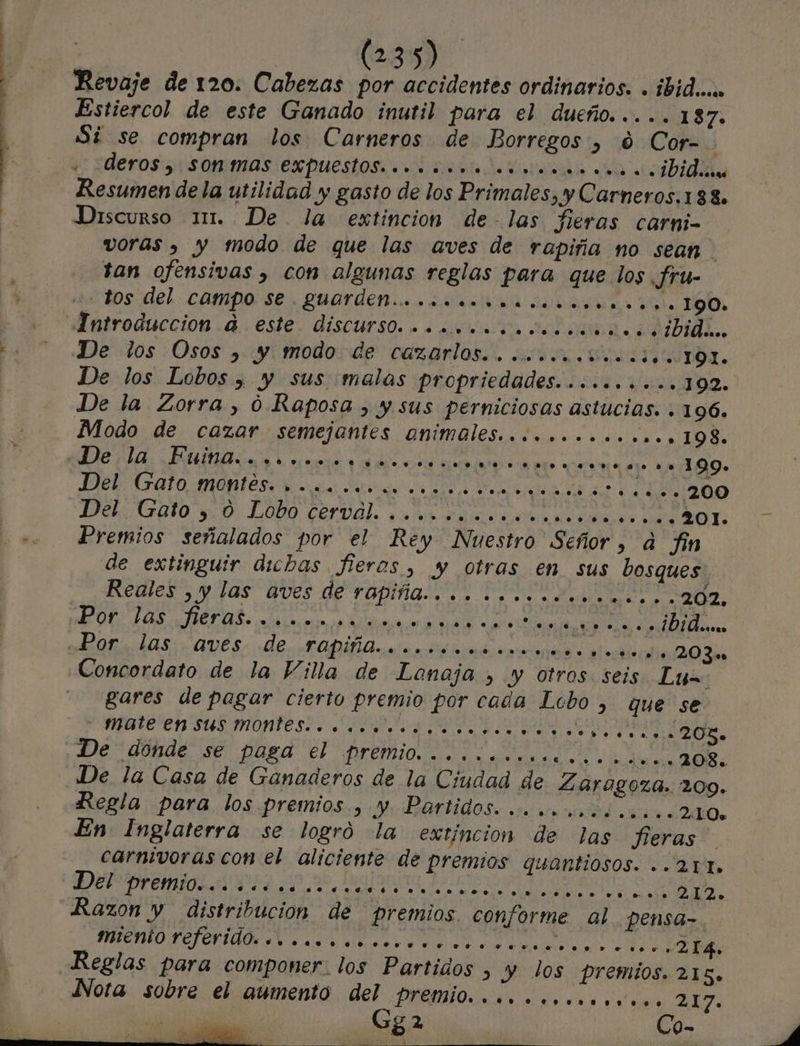 (235)
Revaje de 120. Cabezas por accidentes ordinarios. . ibid.....
Estiercol de este Ganado inutil para el dueño..... 187.
Si se compran los Carneros de Borregos, ò Cor-
deros, son mas expuestos................... ibid.....
Resumen de la utilidad y gasto de los Primales, y Carneros. 188.
Discurso III. De la extincion de las fieras carni-
voras, y modo de que las aves de rapiña no sean
tan ofensivas, con algunas reglas para que los fru-
tos del campo se guarden..................... 190.
Introduccion à este discurso.................. ibid....
De los Osos, y modo de cazarlos............... 191.
De los Lobos, y sus malas propriedades.......... 192.
De la Zorra, ò Raposa, y sus perniciosas astucias. . 196.
Modo de cazar semejantes animales............. 198.
De la Fuina................................ 199.
Del Gato montès............................ 200
Del Gato, ò Lobo cervàl..................... 201.
Premios señalados por el Rey Nuestro Señor, à fin
de extinguir dichas fieras, y otras en sus bosques
Reales, y las aves de rapiña.................. 202.
Por las fieras.............................. ibid.....
Por las aves de rapiña....................... 203..
Concordato de la Villa de Lanaja, y otros seis Lu-
gares de pagar cierto premio por cada Lobo, que se
mate en sus montes.......................... 205.
De donde se paga el premio................... 208.
De la Casa de Ganaderos de la Ciudad de Zaragoza. 209.
Regla para los premios, y Partidos............. 210.
En Inglaterra se logrò la extincion de las fieras
carnivoras con el aliciente de premios quantiosos. .. 211.
Del premio................................. 212.
Razon y distribucion de premios conforme al pensa-
miento referido............................. 214.
Reglas para componer los Partidos, y los premios. 215.
Nota sobre el aumento del premio.............. 217.
Gg 2 Co-